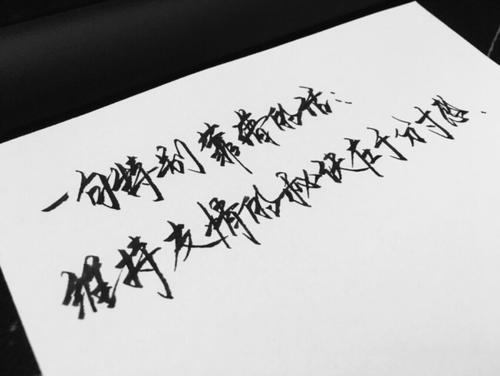 一句特别靠谱的话：
维持友情的秘诀在于分寸感.